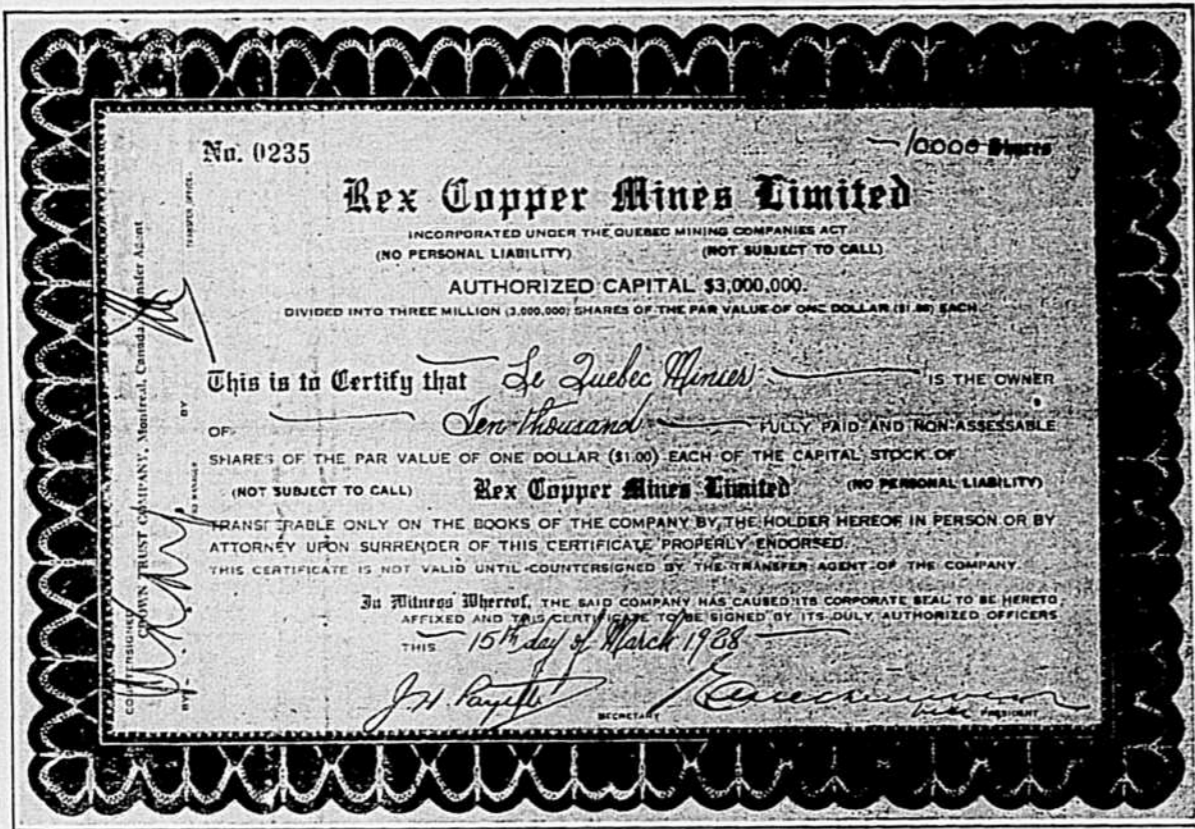 No. 0235
10000 Shares
Rex Copper Mines Limited
INCORPORATED UNDER THE QUEBEC MINING COMPANIES ACT
(NO PERSONAL LIABILITY) (NOT SUBJECT TO CALL)
AUTHORIZED CAPITAL $3,000,000.
DIVIDED INTO THREE MILLION (3,000,000) SHARES OF THE PAR VALUE OF ONE DOLLAR ($1.00) EACH
This is to Certify that Le Quebec Minier IS THE OWNER
OF Ten thousand FULLY PAID AND NON-ASSESSABLE
SHARES OF THE PAR VALUE OF ONE DOLLAR ($1.00) EACH OF THE CAPITAL STOCK OF
(NOT SUBJECT TO CALL) Rex Copper Mines Limited (NO PERSONAL LIABILITY)
TRANSFERABLE ONLY ON THE BOOKS OF THE COMPANY BY THE HOLDER HEREOF IN PERSON OR BY
ATTORNEY UPON SURRENDER OF THIS CERTIFICATE PROPERLY ENDORSED.
THIS CERTIFICATE IS NOT VALID UNTIL COUNTERSIGNED BY THE TRANSFER AGENT OF THE COMPANY.
In Witness Whereof, THE SAID COMPANY HAS CAUSED ITS CORPORATE SEAL TO BE HERETO
AFFIXED AND THIS CERTIFICATE TO BE SIGNED BY ITS DULY AUTHORIZED OFFICERS
THIS 15th day of March 1928
J. H. Payette
SECRETARY
Vice PRESIDENT
COUNTERSIGNED
CROWN TRUST COMPANY, Montreal, Canada, Transfer Agent
BY MANAGER BY TRANSFER OFFICER